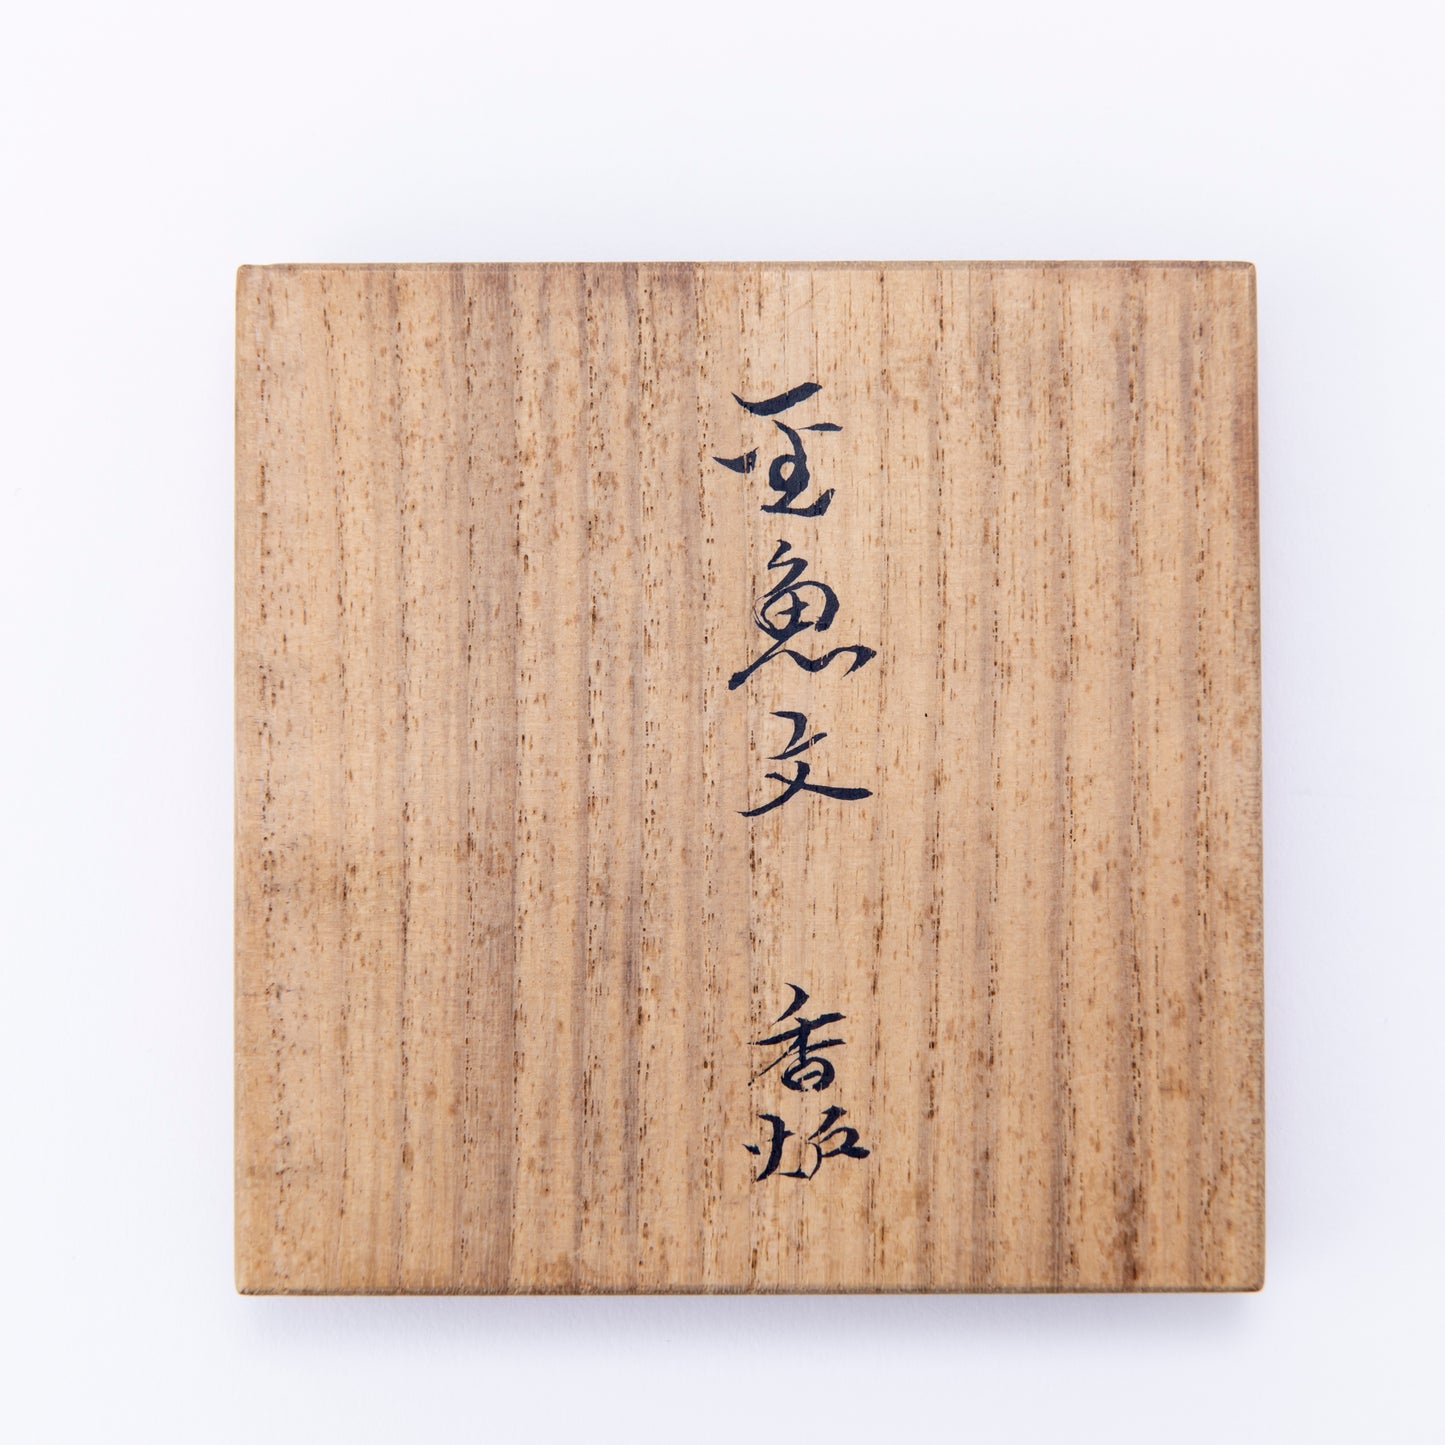 魚文 香炉